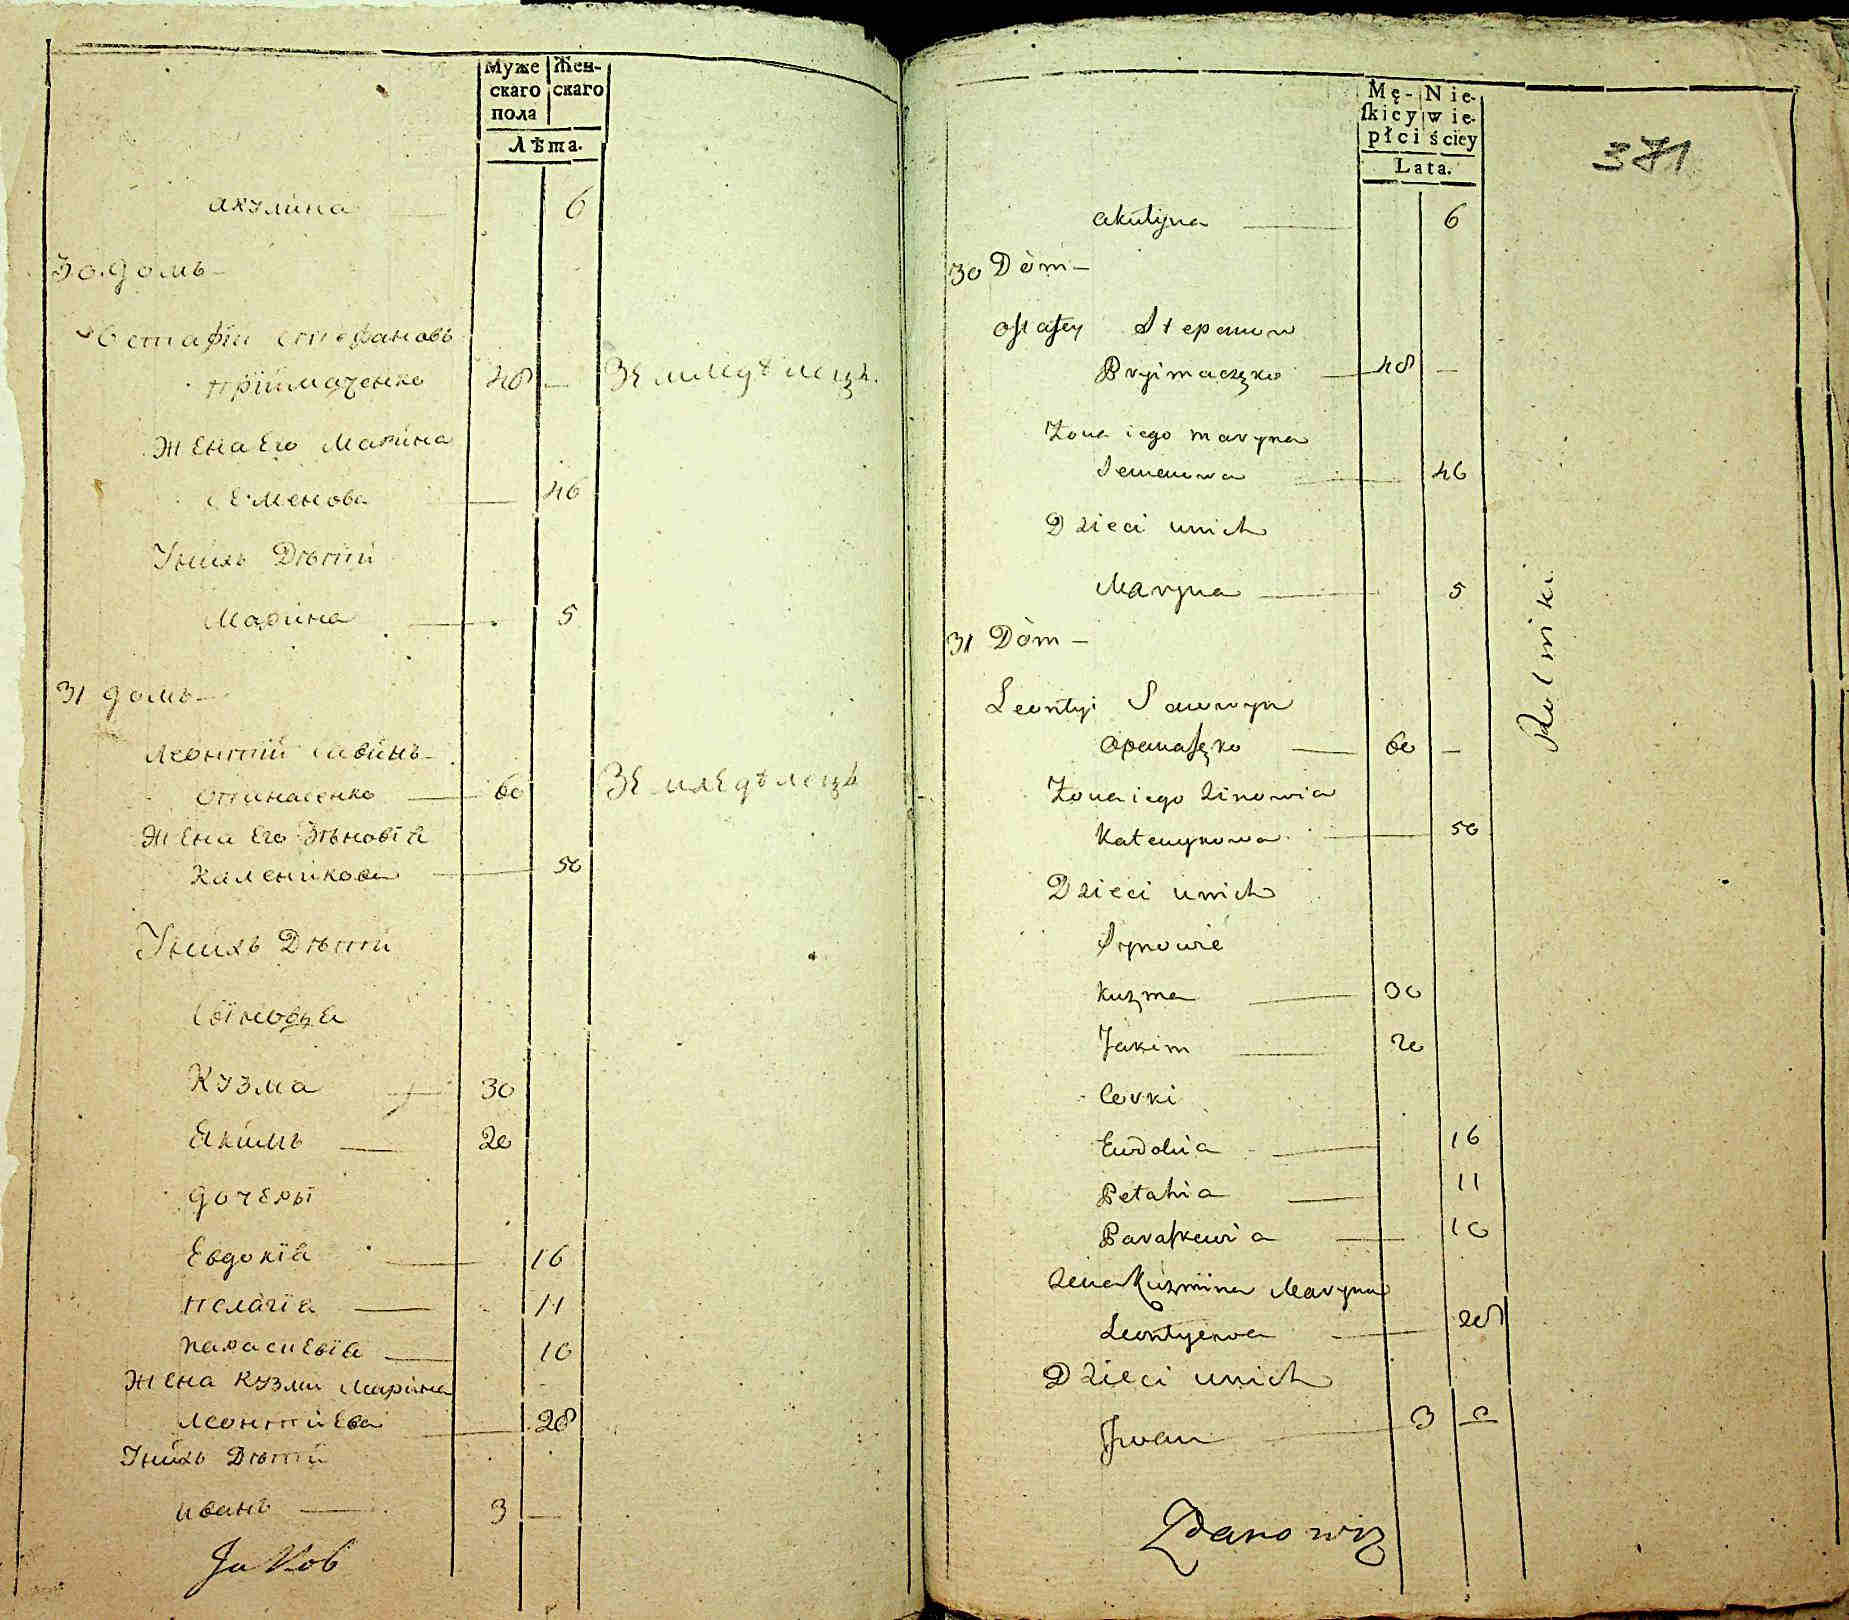 Муже
скаго
пола
Жен-
скаго
Лѣта.
акулина — 6
30. домъ —
Остафіи Стефановъ
прїймаченко 48 — Землѣдѣлецъ.
жена Его Марина
Семенова — 46
Унихъ Дѣти
Марина — 5
31 домъ —
Леонтій Савинъ
опанасенко — 60 Землѣдѣлецъ
жена Его Зѣновїа
Каленикова — 50
Унихъ Дѣти
Сїновѣа
Кузма — 30
Якимъ — 20
дочеры
Евдокїа — 16
пелагїа — 11
параскевїа — 10
жена кузми Марина
леонтиева — 28
Унихъ Дѣти
иванъ — 3 —
Jakob
Mę-
skicy
płci
Nie-
wie-
ściey
Lata.
371
akulyna — 6
30 Dòm —
ostafey Stepanow
Pryimaczęko — 48 —
Zona iego maryna
Semenowa — 46
Dzieci unich
Maryna — 5
31 Dòm —
Leontyi Sawwyn
opanasęko — 60 —
Zona iego Zinowia
Kalenykowa — 50
Dzieci unich
Synowie
kuzma — 30
Jakim — 20
Corki
Eudokia — 16
Pelahia — 11
Paraskewia — 10
Zena Kuzmina Maryna
Leontyewa — 28
Dzieci unich
Jwan — 3
Rolniki
Zdanowicz